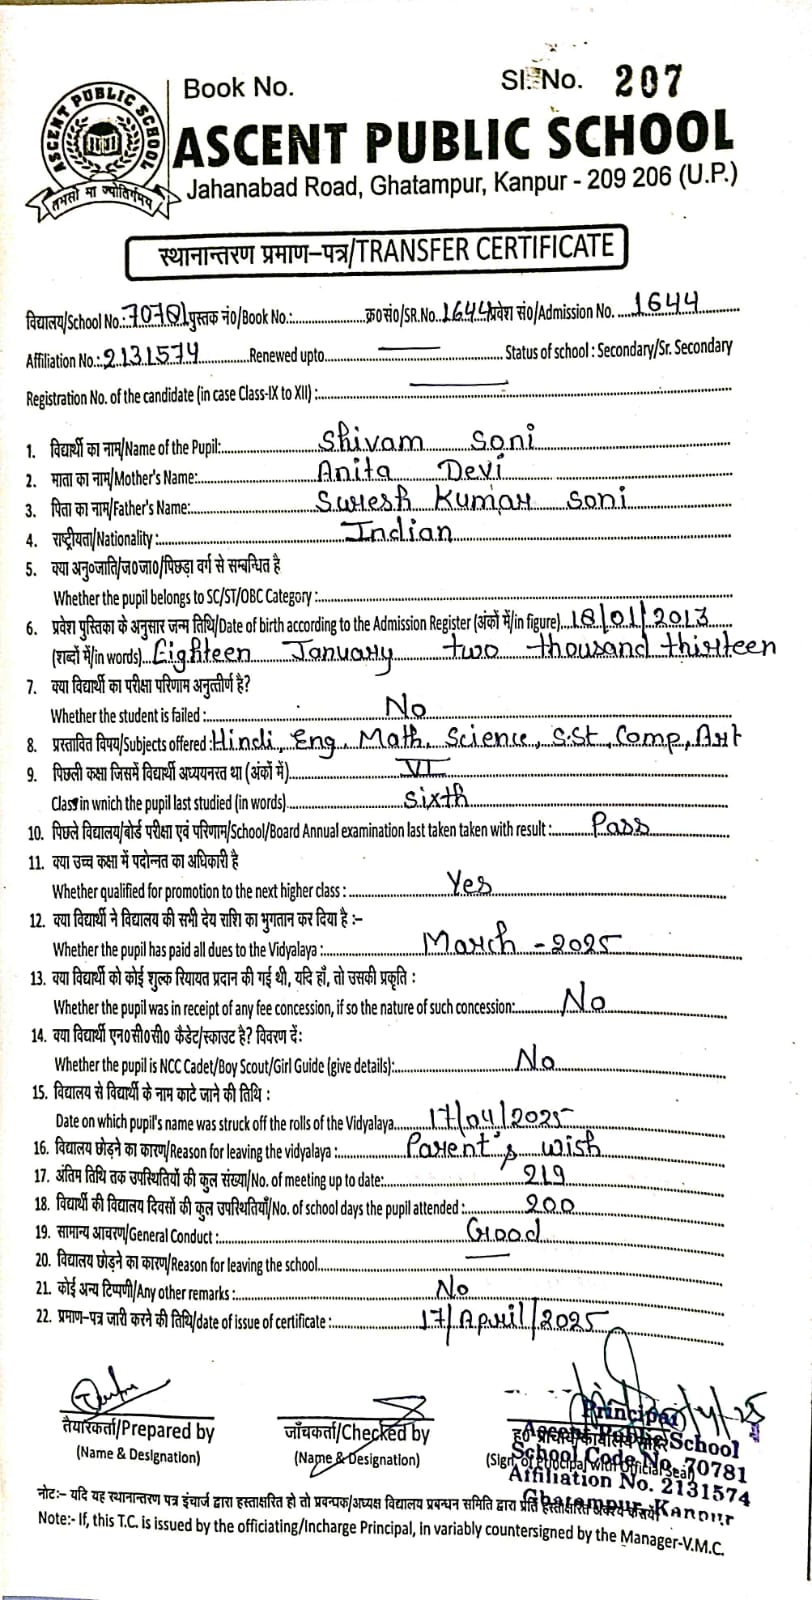 Book No.
Sl. No. 207
ASCENT PUBLIC SCHOOL
तमसो मा ज्योतिर्गमय
ASCENT PUBLIC SCHOOL
Jahanabad Road, Ghatampur, Kanpur - 209 206 (U.P.)
स्थानान्तरण प्रमाण-पत्र/TRANSFER CERTIFICATE
विद्यालय/School No.: 70781 पुस्तक नं0/Book No.:.......... क्र0सं0/SR.No. 1644 प्रवेश सं0/Admission No. 1644
Affiliation No.: 2131574 Renewed upto.......... Status of school : Secondary/Sr. Secondary
Registration No. of the candidate (in case Class-IX to XII) :..........
1. विद्यार्थी का नाम/Name of the Pupil: Shivam Soni
2. माता का नाम/Mother's Name: Anita Devi
3. पिता का नाम/Father's Name: Suresh Kumar Soni
4. राष्ट्रीयता/Nationality : Indian
5. क्या अनु०जाति/ज०जा०/पिछड़ा वर्ग से सम्बन्धित है
Whether the pupil belongs to SC/ST/OBC Category :..........
6. प्रवेश पुस्तिका के अनुसार जन्म तिथि/Date of birth according to the Admission Register (अंकों में/in figure) 18/01/2013
(शब्दों में/in words) Eighteen January two thousand thirteen
7. क्या विद्यार्थी का परीक्षा परिणाम अनुत्तीर्ण है?
Whether the student is failed : No
8. प्रस्तावित विषय/Subjects offered : Hindi, Eng, Math, Science, S.St, Comp, Art
9. पिछली कक्षा जिसमें विद्यार्थी अध्ययनरत था (अंकों में) VI
Class in wnich the pupil last studied (in words) Sixth
10. पिछले विद्यालय/बोर्ड परीक्षा एवं परिणाम/School/Board Annual examination last taken taken with result : Pass
11. क्या उच्च कक्षा में पदोन्नत का अधिकारी है
Whether qualified for promotion to the next higher class : Yes
12. क्या विद्यार्थी ने विद्यालय की सभी देय राशि का भुगतान कर दिया है :-
Whether the pupil has paid all dues to the Vidyalaya : March - 2025
13. क्या विद्यार्थी को कोई शुल्क रियायत प्रदान की गई थी, यदि हाँ, तो उसकी प्रकृति :
Whether the pupil was in receipt of any fee concession, if so the nature of such concession: No
14. क्या विद्यार्थी एन०सी०सी० कैडेट/स्काउट है? विवरण दें:
Whether the pupil is NCC Cadet/Boy Scout/Girl Guide (give details): No
15. विद्यालय से विद्यार्थी के नाम काटे जाने की तिथि :
Date on which pupil's name was struck off the rolls of the Vidyalaya 17/04/2025
16. विद्यालय छोड़ने का कारण/Reason for leaving the vidyalaya : Parent's wish
17. अंतिम तिथि तक उपस्थितियों की कुल संख्या/No. of meeting up to date: 219
18. विद्यार्थी की विद्यालय दिवसों की कुल उपस्थितियाँ/No. of school days the pupil attended : 200
19. सामान्य आचरण/General Conduct : Good
20. विद्यालय छोड़ने का कारण/Reason for leaving the school..........
21. कोई अन्य टिप्पणी/Any other remarks : No
22. प्रमाण-पत्र जारी करने की तिथि/date of issue of certificate : 17/April/2025
तैयारकर्ता/Prepared by
(Name & Designation)
जाँचकर्ता/Checked by
(Name & Designation)
Principal
Ascent Public School
School Code No. 70781
(Sign. of Principal with Official Seal)
Affiliation No. 2131574
Ghatampur, Kanpur
नोट:- यदि यह स्थानान्तरण पत्र इंचार्ज द्वारा हस्ताक्षरित हो तो प्रबन्धक/अध्यक्ष विद्यालय प्रबन्धन समिति द्वारा प्रति हस्ताक्षरित
Note:- If, this T.C. is issued by the officiating/Incharge Principal, in variably countersigned by the Manager-V.M.C.